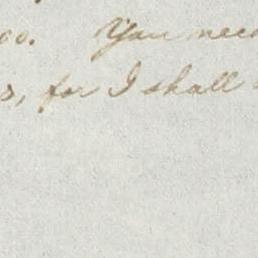 You need
s, for I shall